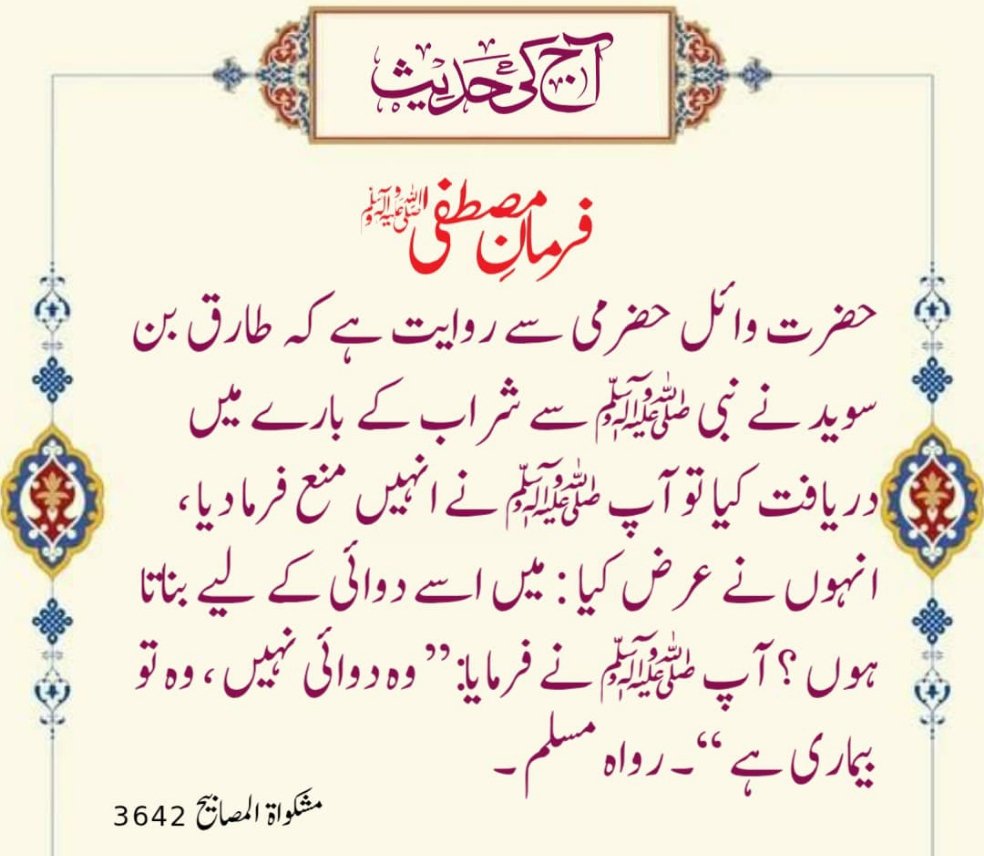 آج کی حدیث
فرمانِ مصطفی ﷺ
حضرت وائل حضرمی سے روایت ہے کہ طارق بن
سوید نے نبی ﷺ سے شراب کے بارے میں
دریافت کیا تو آپ ﷺ نے انہیں منع فرما دیا،
انہوں نے عرض کیا: میں اسے دوائی کے لیے بناتا
ہوں؟ آپ ﷺ نے فرمایا: ’’وہ دوائی نہیں، وہ تو
بیماری ہے‘‘۔ رواہ مسلم۔
مشکواۃ المصابیح 3642